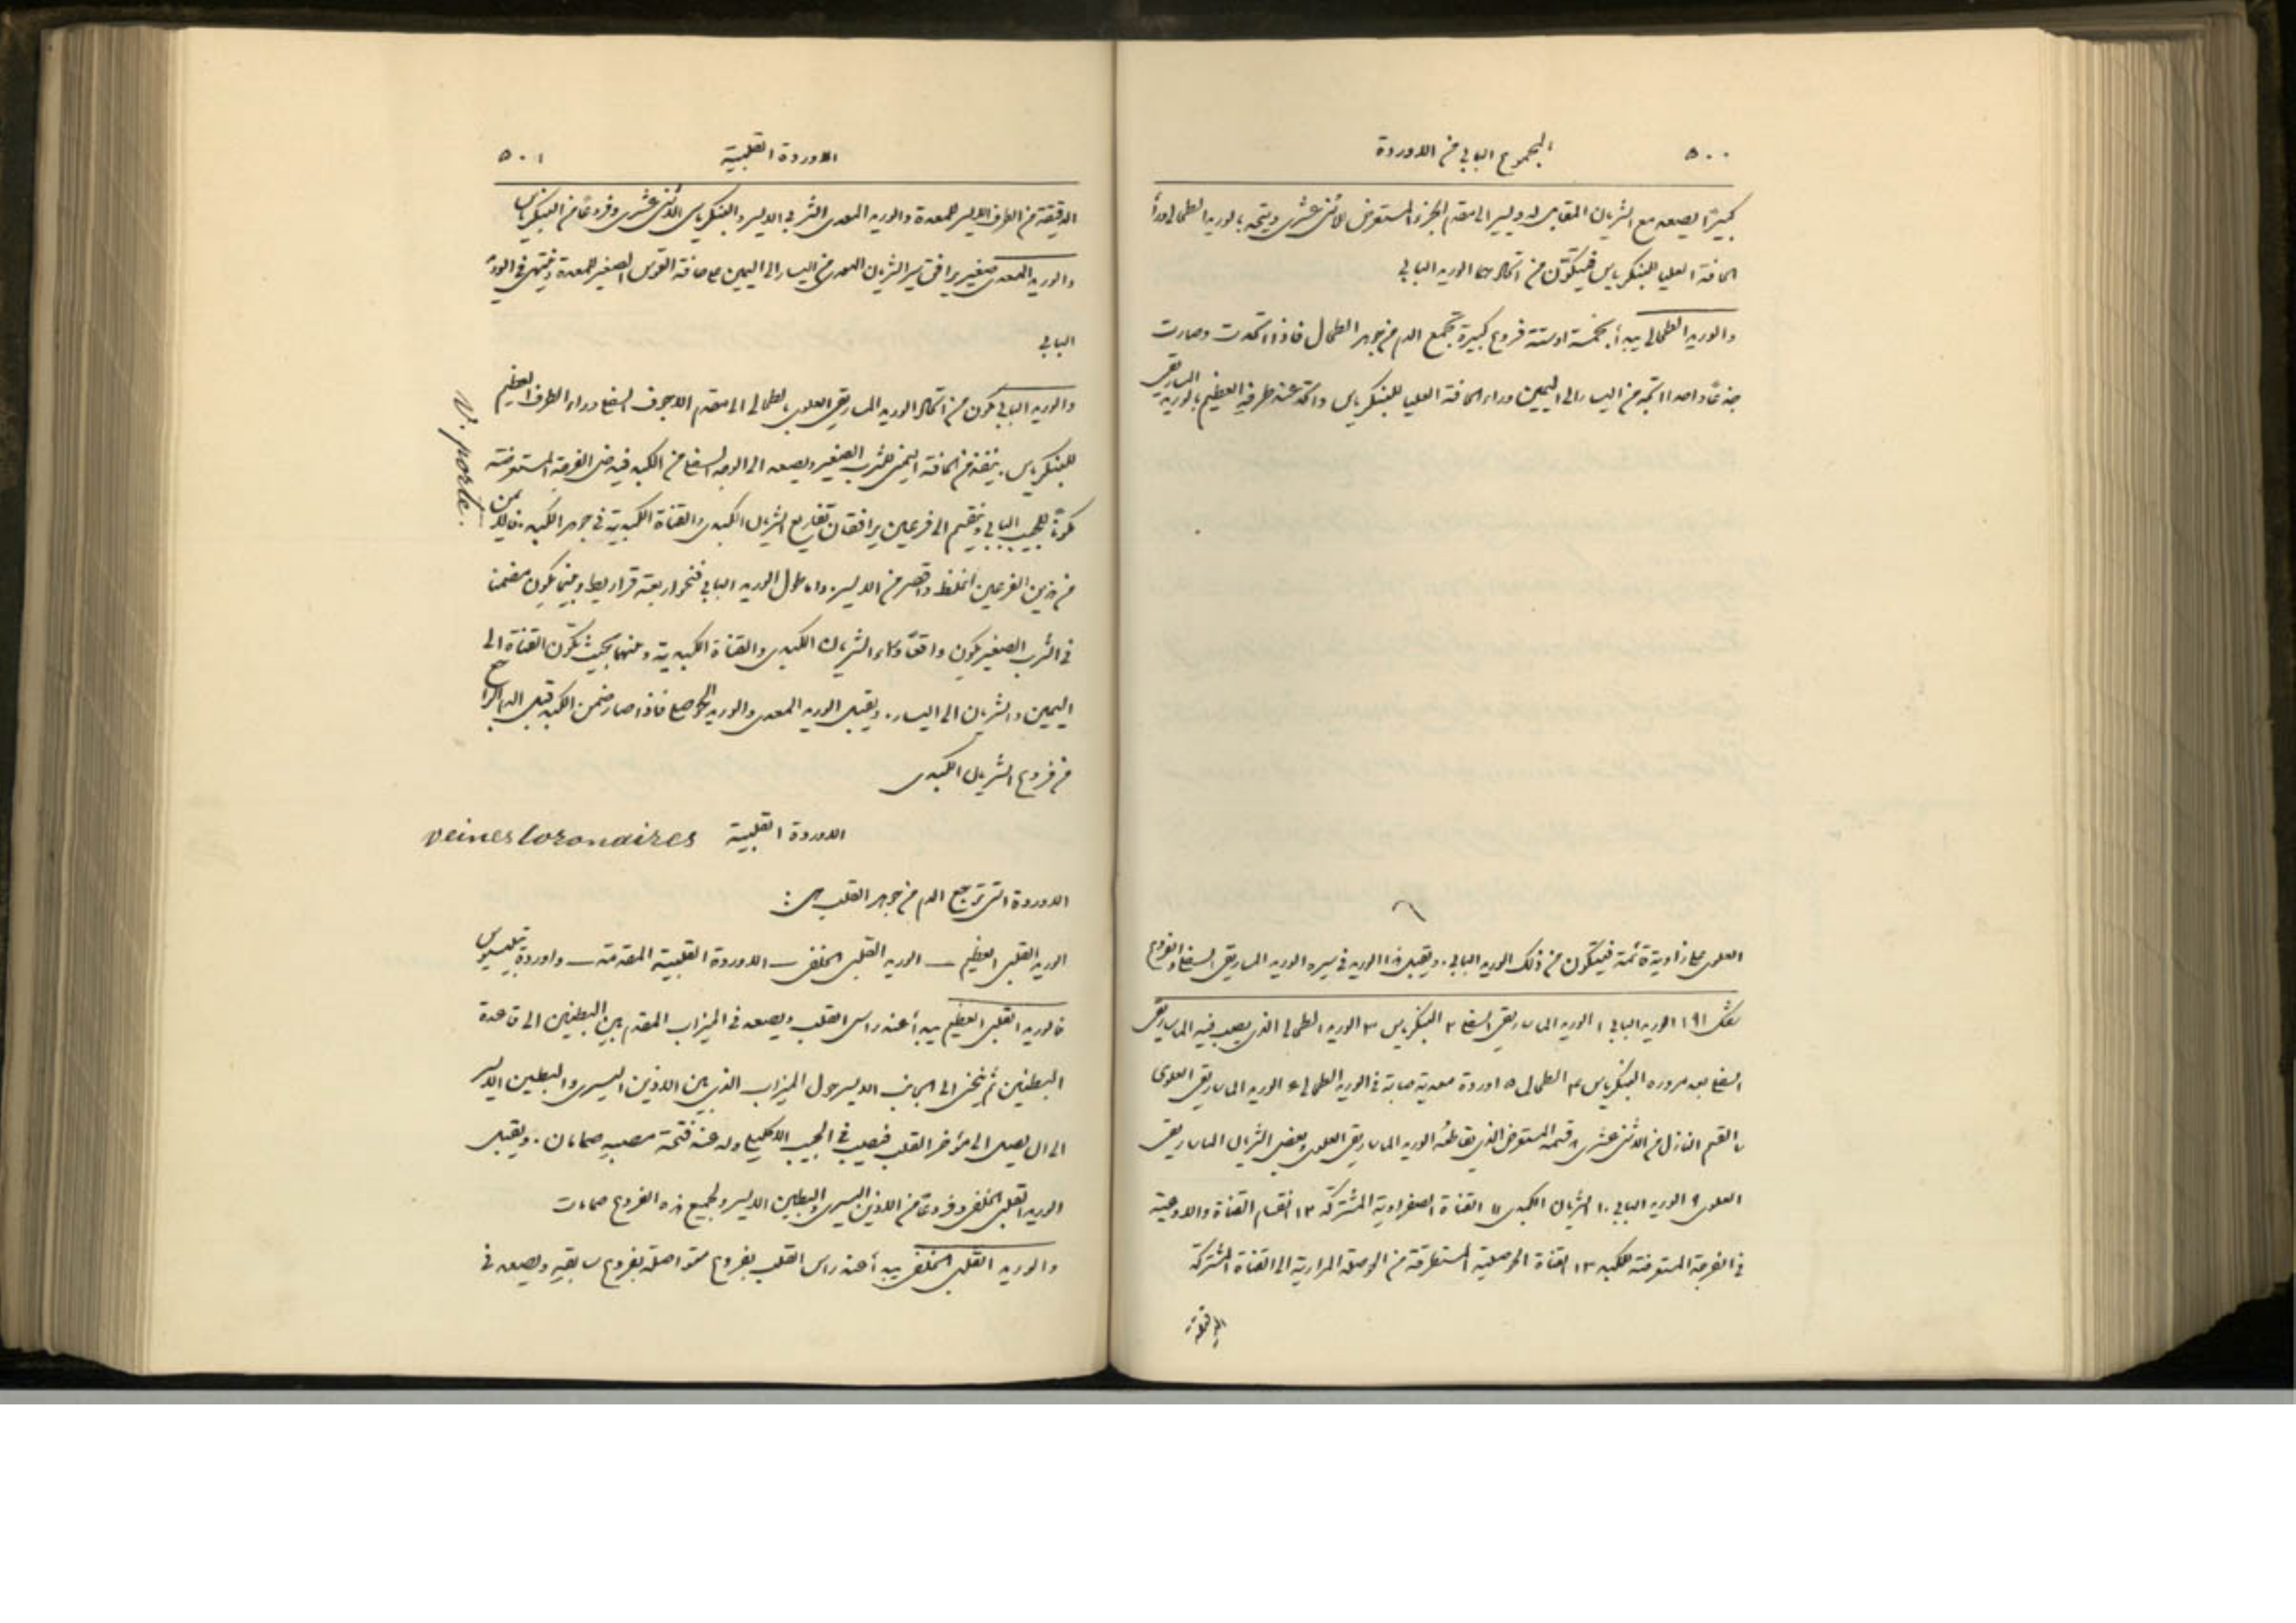 ٥٠٠ المجموع البابي من الاوردة
كبيرًا يصعد مع الشريان المقابل له ويسير الى مقدم الجزء المستعرض للاثني عشري ويتحد بالوريد الطحالي وراءَ
الحافة العليا للبنكرياس فيتكوّن من اتحادهما الوريد البابي
والوريد الطحالي يبدأ بخمسة او ستة فروع كبيرة تجمع الدم من جوهر الطحال فاذا اتحدت وصارت
جذعًا واحدا اتجه من اليسار الى اليمين وراء الحافة العليا للبنكرياس واتحد عند طرفه العظيم بالوريد المساريقي
العلوي على زاوية قائمة فيتكون من ذلك الوريد البابي. ويقبل هذا الوريد في سيره الوريد المساريقي السفلي والفروع
شكل ١٩١ الوريد البابي ١ الوريد الماساريقي السفلي ٢ البنكرياس ٣ الوريد الطحالي الذي يصب فيه الماساريقي
السفلي بعد مروره البنكرياس ٤ الطحال ٥ اوردة معدية صابة في الوريد الطحالي ٦ الوريد الماساريقي العلوي
٧ القسم النازل من الاثني عشري ٨ قسمه المستعرض الذي يقاطعه الوريد الماساريقي العلوي وبعض الشريان الماساريقي
العلوي ٩ الوريد البابي ١٠ الشريان الكبدي ١١ القناة الصفراوية المشتركة ١٢ انقسام القناة والاوعية
في الفرجة المستعرضة للكبد ١٣ القناة الحوصلية المستطرقة من الحوصلة المرارية الى القناة المشتركة
الاوردة القلبية ٥٠١
الدقيقة من الطرف الايسر للمعدة والوريد المعدي الثربي الايسر والبنكرياسي الاثني عشري وفروعًا من البنكرياس
والوريد المعدي صغير يرافق سير الشريان المعدي من اليسار الى اليمين على حافة القوس الصغير للمعدة وينتهي في الوريد
البابي
والوريد البابي يتكون من اتحاد الوريد المساريقي العلوي بالطحالي الى مقدم الاجوف السفلي وراء الطرف العظيم
للبنكرياس. ينفذ من الحافة اليمنى للثرب الصغير ويصعد الى الوجه السفلي من الكبد فيدخل الفرجة المستعرضة
مكونًا للجيب البابي وينقسم الى فرعين يرافقان تفاريع الشريان الكبدي والقناة الكبدية في جوهر الكبد. فالايمن
من هذين الفرعين اغلظ واقصر من الايسر. واما طول الوريد البابي فنحو اربعة قراريط وبينما يكون مضمنا
في الثرب الصغير يكون واقعًا وراء الشريان الكبدي والقناة الكبدية وبينهما بحيث تكون القناة الى
اليمين والشريان الى اليسار. ويقبل الوريد المعدي والوريد الحوصلي فاذا صار ضمن الكبد قبل الدم الراجع
من فروع الشريان الكبدي
V. porte.
الاوردة القلبية veines Coronaires
الاوردة التي ترجع الدم من جوهر القلب هي:
الوريد القلبي العظيم — الوريد القلبي الخلفي — الاوردة القلبية المقدمة — واوردة ثبيسيوس
فالوريد القلبي العظيم يبدأ عند راس القلب ويصعد في الميزاب المقدم بين البطينين الى قاعدة
البطينين ثم ينحني الى الجانب الايسر حول الميزاب الذي بين الاذين اليسرى والبطين الايسر
الى ان يصل الى مؤخر القلب فيصب في الجيب الاكليلي وله عند فتحة مصبه صمامان. ويقبل
الوريد القلبي الخلفي وفروعًا من الاذين اليسرى والبطين الايسر ولجميع هذه الفروع صمامات
والوريد القلبي الخلفي يبدأ عند راس القلب بفروع متواصلة بفروع سابقه ويصعد في